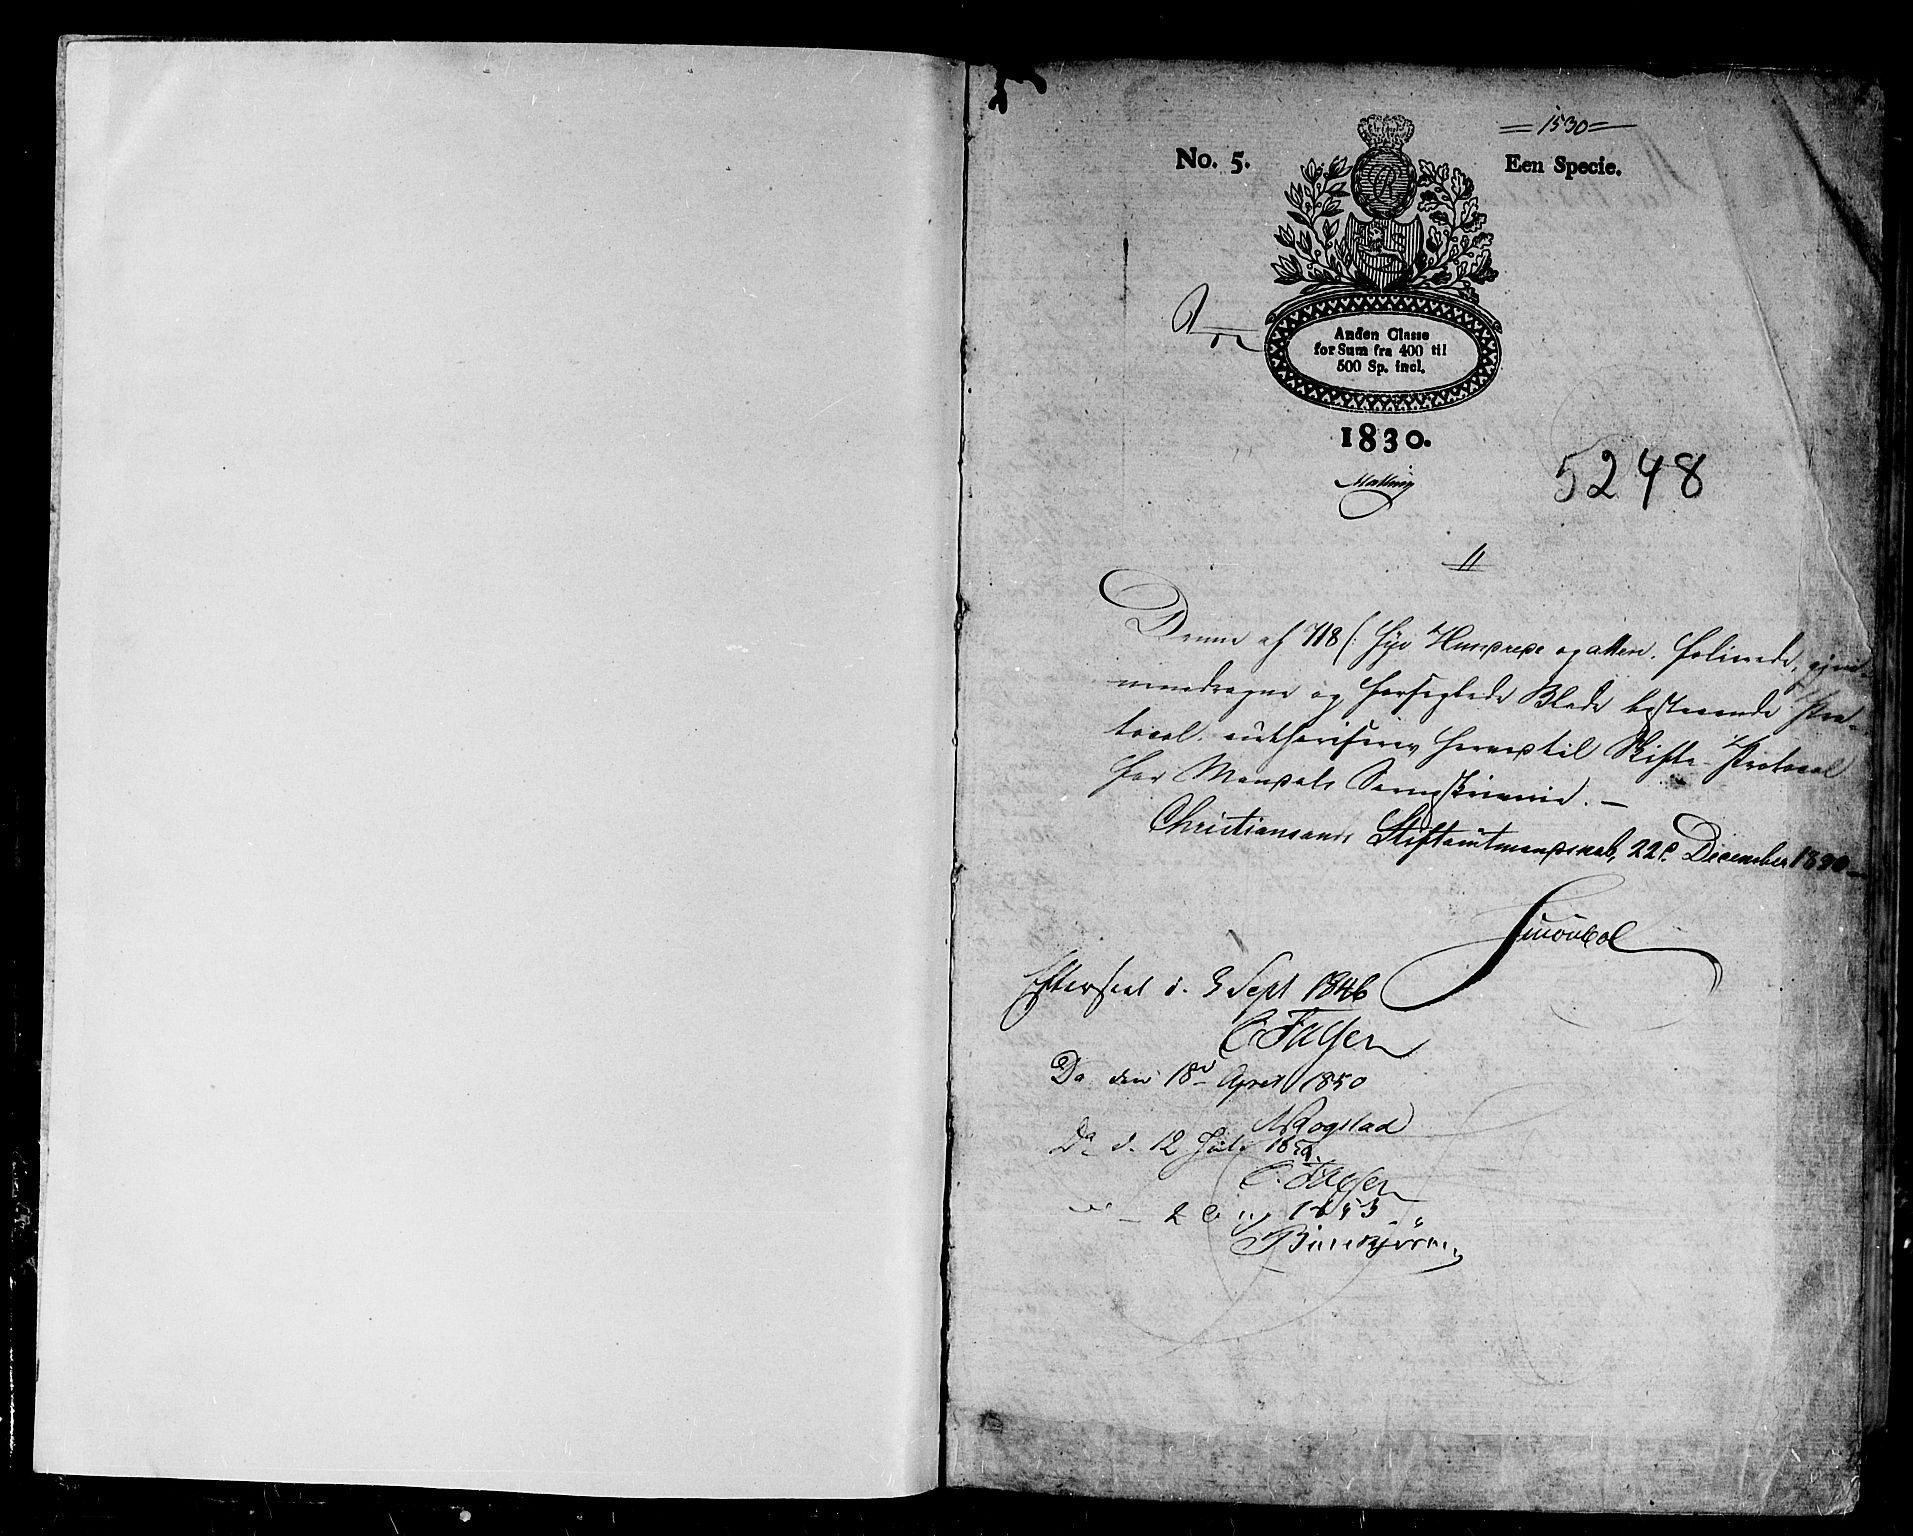 =1530=
No. 5.
Een Specie.
R
Anden Classe
for Sum fra 400 til
500 Sp. incl.
1830.
Malling
5248
Denne af 718 (: Syv Hundrede og atten. folierede, gjen-
nemdragne og forseglede Blade bestaaende Pro-
tocol, authoriseres herved til Skifte-Protocol
for Mandals Sorenskriverie. —
Christiansands Stiftamtmandskab, 22de December 1830 —
Efterseet d. 3 Sept 1846
C Falsen
Do den 18de April 1850
Rogstad
Do d. 12 Juli
C. Falsen
1853